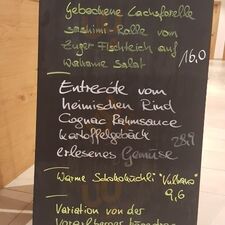 Gebackene Lachsforelle
sashimi-Rolle vom
Zuger Fischteich auf
Wakame Salat 16,0
Entrecôte vom
heimischen Rind
Cognac Rahmsauce
Kartoffelgebäck 28,9
erlesenes Gemüse
Warme Schokoküchli "Vulkano"
9,6
Variation von der
Vorarlberger